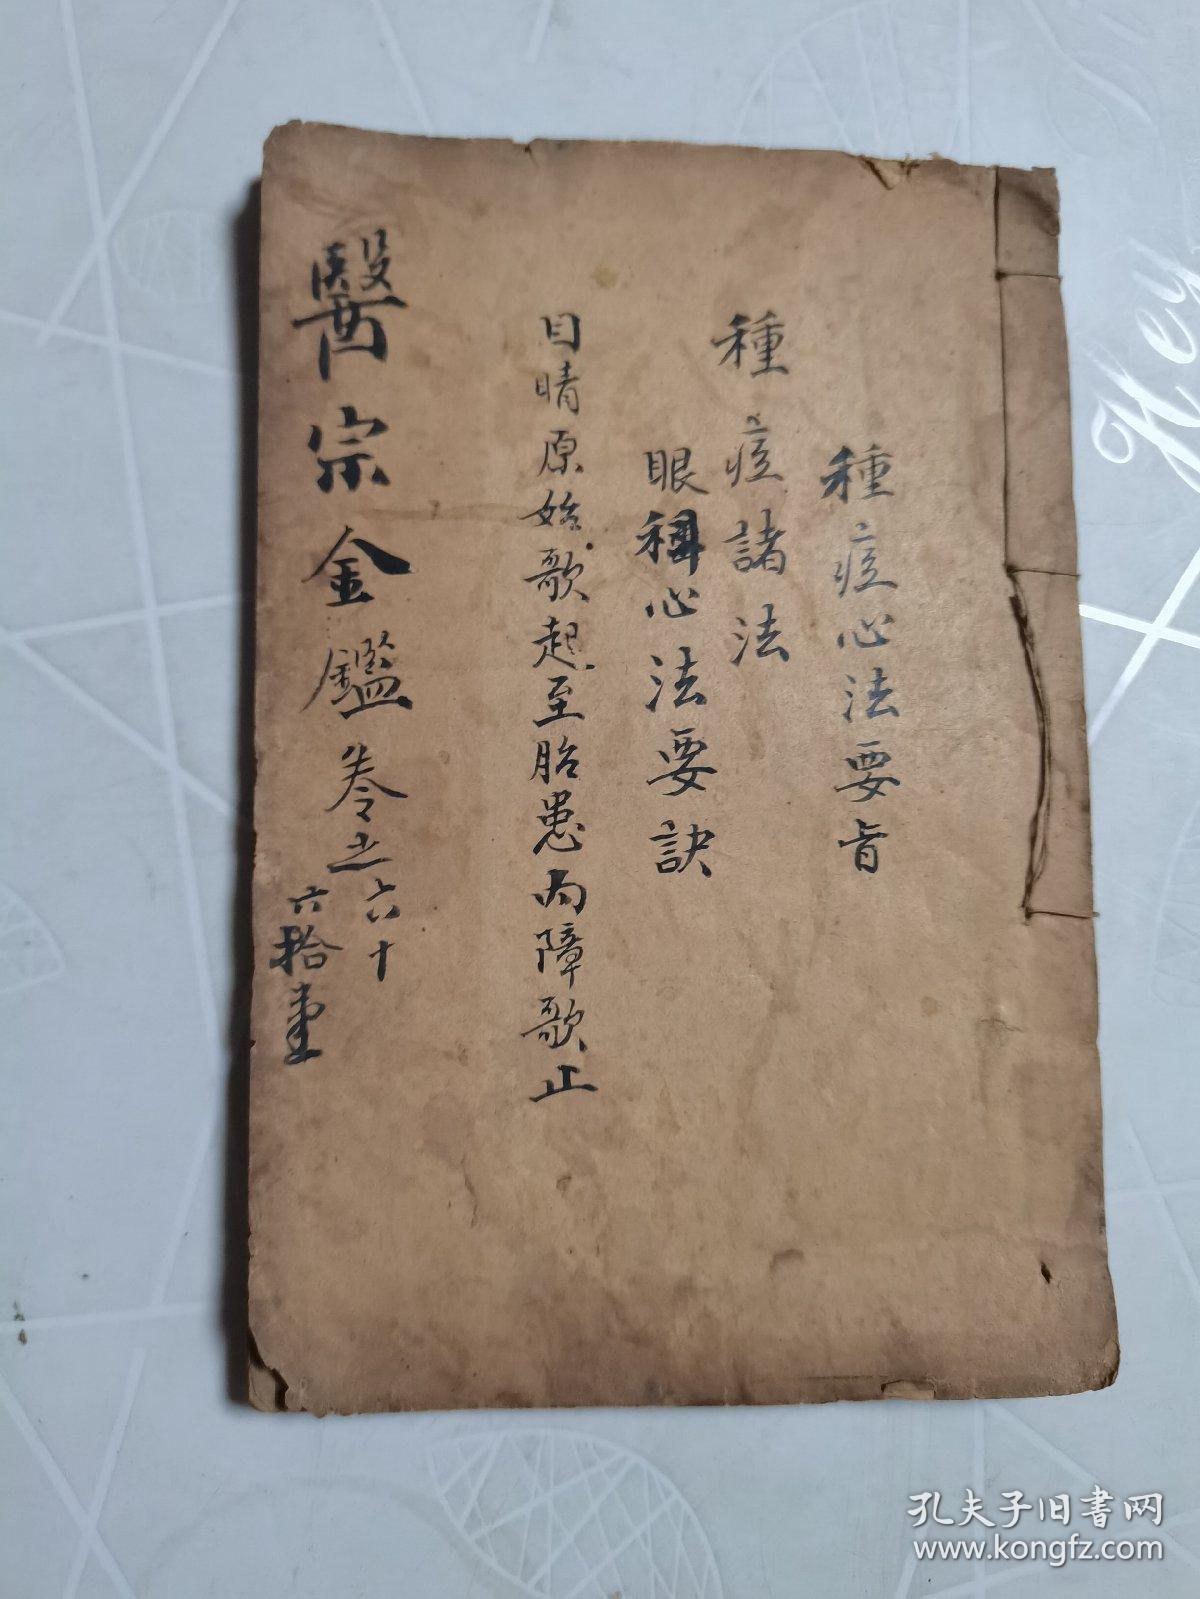 種痘心法要旨
種痘諸法
眼科心法要訣
目睛原始歌起至胎患内障歌止
醫宗金鑑卷之六十
六拾壹
孔夫子旧书网
www.kongfz.com